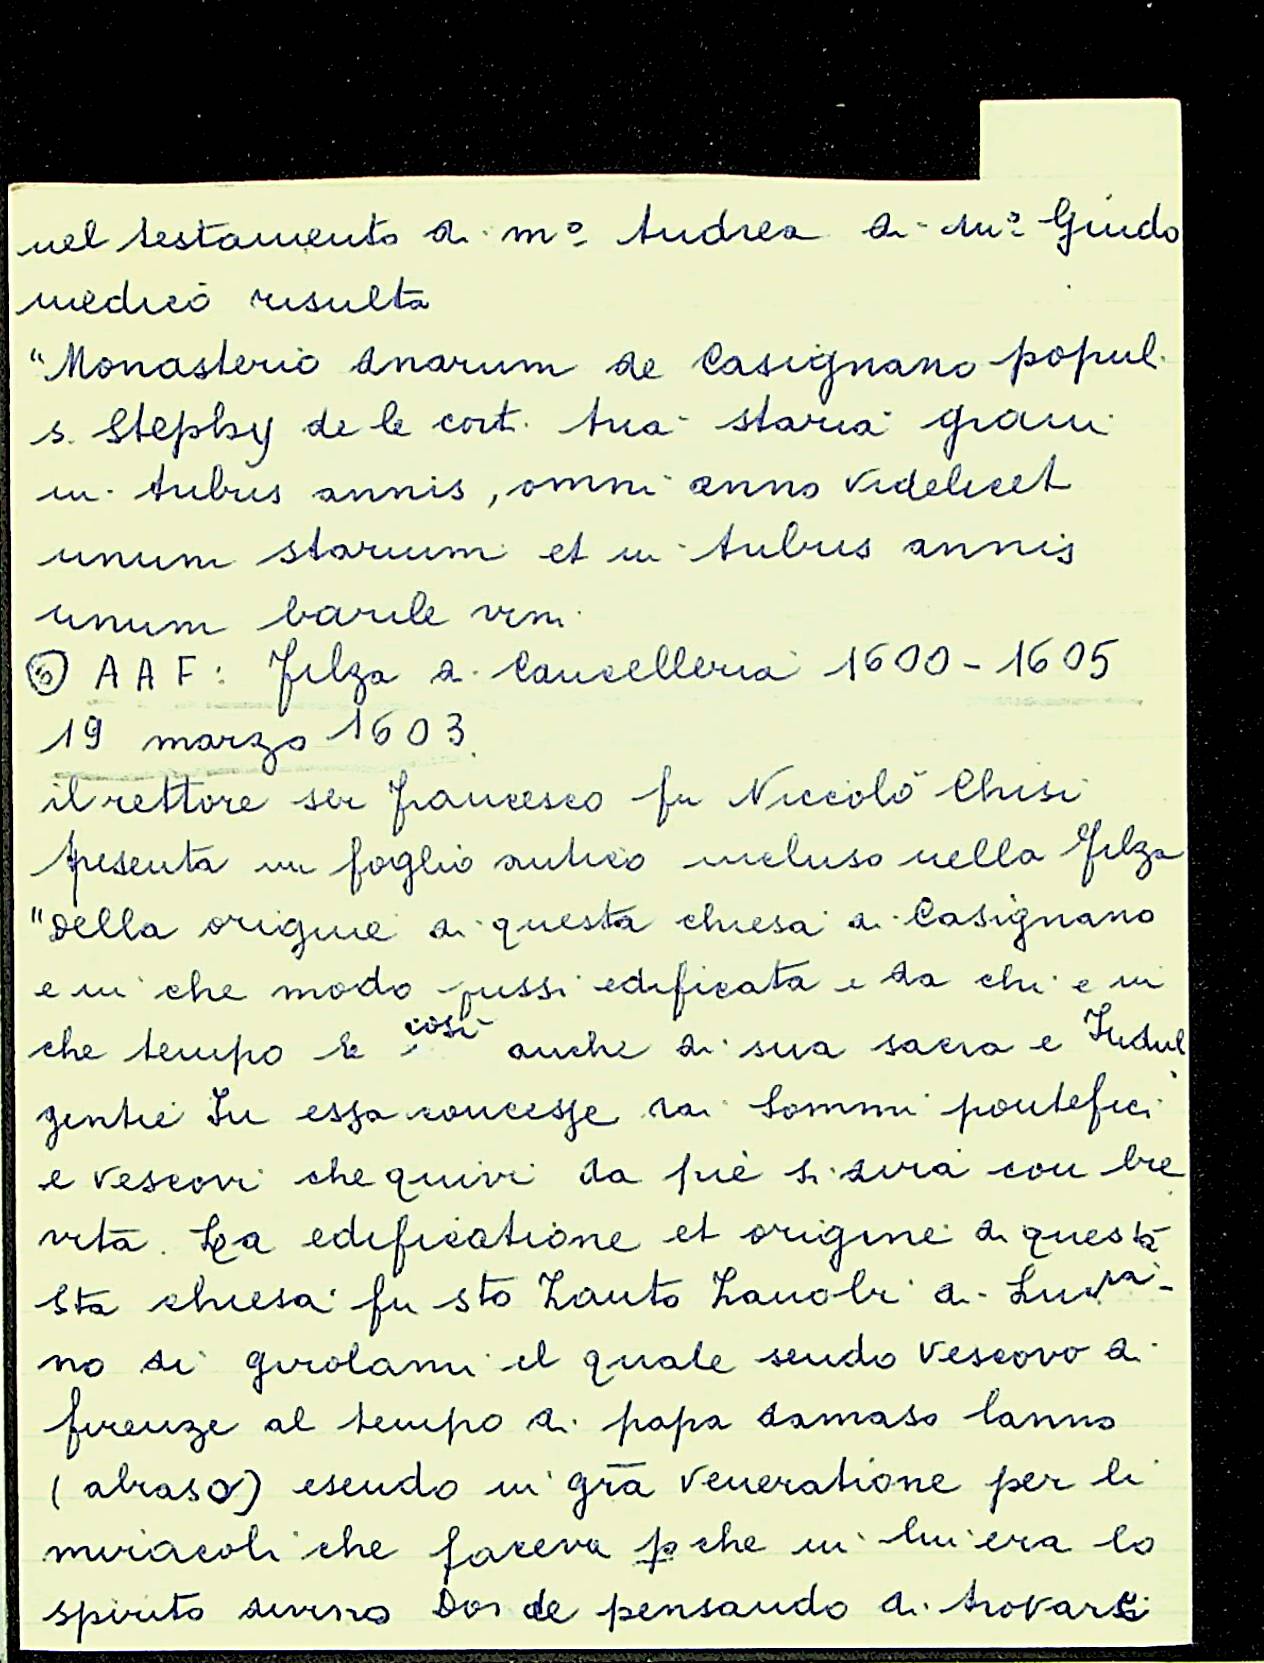 nel testamento di m° Andrea di m° Guido
medico risulta
"Monasterio dnarum de Casignano popul.
s. Stephy de le cort. tria staria grani
in tribus annis, omni anno videlicet
unum starium et in tribus annis
unum barile vini
⑤ A A F: Filza di Cancelleria 1600-1605
19 marzo 1603
il rettore ser Francesco fu Niccolò Chisi
presenta un foglio antico incluso nella Filza
"Della origine di questa chiesa di Casignano
e in che modo fussi edificata e da chi e in
che tempo e così anche di sua sacra e Indul
gentie In essa concesse dai Sommi pontefici
e vescovi che quivi da piè si dirà con bre
vità. La edificatione et origine di questa
sta chiesa fu sto Zanto Zanobi di
no di girolami il quale sendo Vescovo di
firenze al tempo di papa damaso lanno
(abraso) esendo in grā Veneratione per li
miracoli che faceva p che in lui era lo
spirito divino Donde pensando di trovarsi